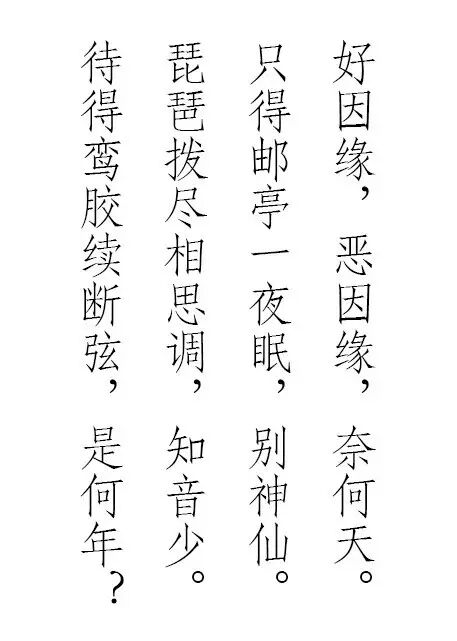 好因缘，恶因缘，奈何天。
只得邮亭一夜眠，别神仙。
琵琶拨尽相思调，知音少。
待得鸾胶续断弦，是何年？